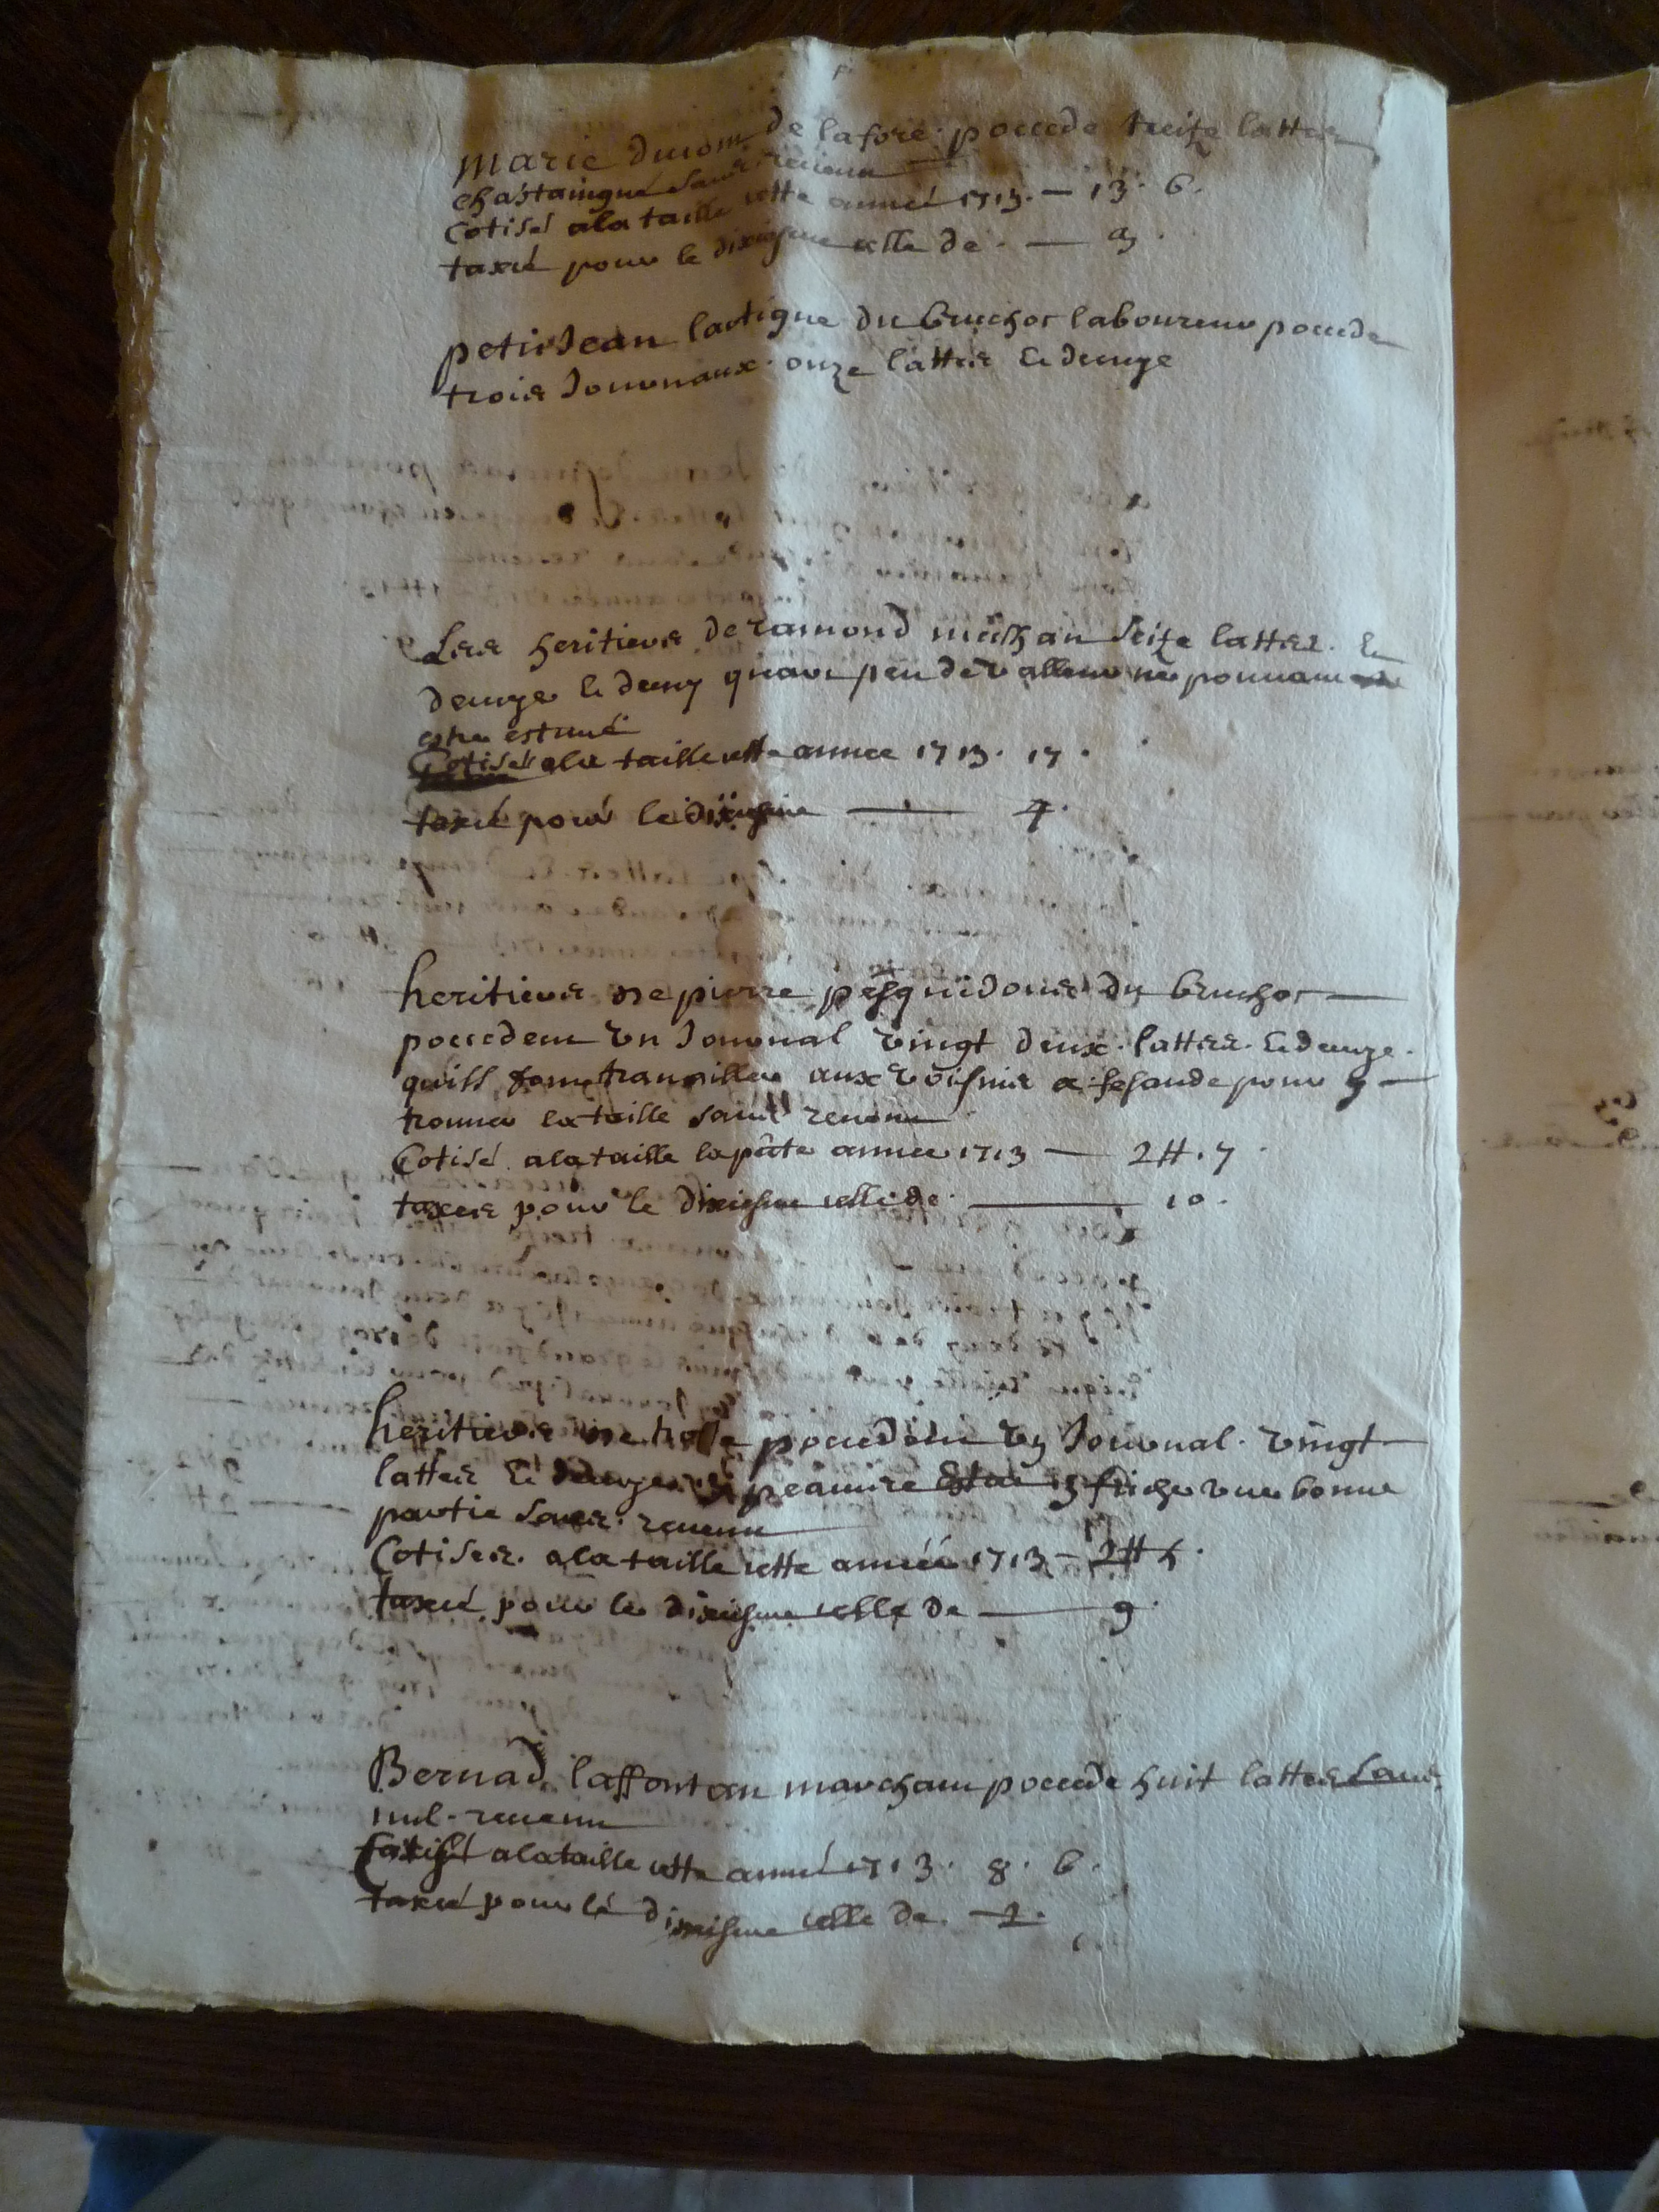 Marie ducom de lafore poccede treize lattes
chastaingné sans revenu
Cotisé ala taille cette année 1713. — 13. 6.
taxée pour le dixiesme celle de. — 3.
petit Jean lartigue du bruchot laboureur poccede
trois Journaux. onze lattes et demye
Les heritiers de ramond seize lattes. et
demye le demy peu de valleur ne pouvant
estre estimé
Cotisés ala taille cette annee 1713. 17.
taxé pour le dixiesme — 4.
heritiers de pierre pesquidous du bruchot —
poccedent un Journal vingt deux. lattes. et demye.
quils font travailler aux voisins a pour y —
trouver la taille sans revenu
Cotisé ala taille la année 1713 — 2 ₶. 7.
taxés pour le dixiesme celle de. — 10.
heritiers de poccedent un Journal. vingt
lattes et demye friche une bonne
partie sans. revenu
Cotisés. ala taille cette année 1713 — 2 ₶ 5.
taxé pour le dixiesme celle de — 9.
Bernad laffontan marchant poccede huit lattes sans
nul. revenu
Cotisé ala taille cette année 1713. 8. 6.
taxé pour le dixiesme celle de. — 2.